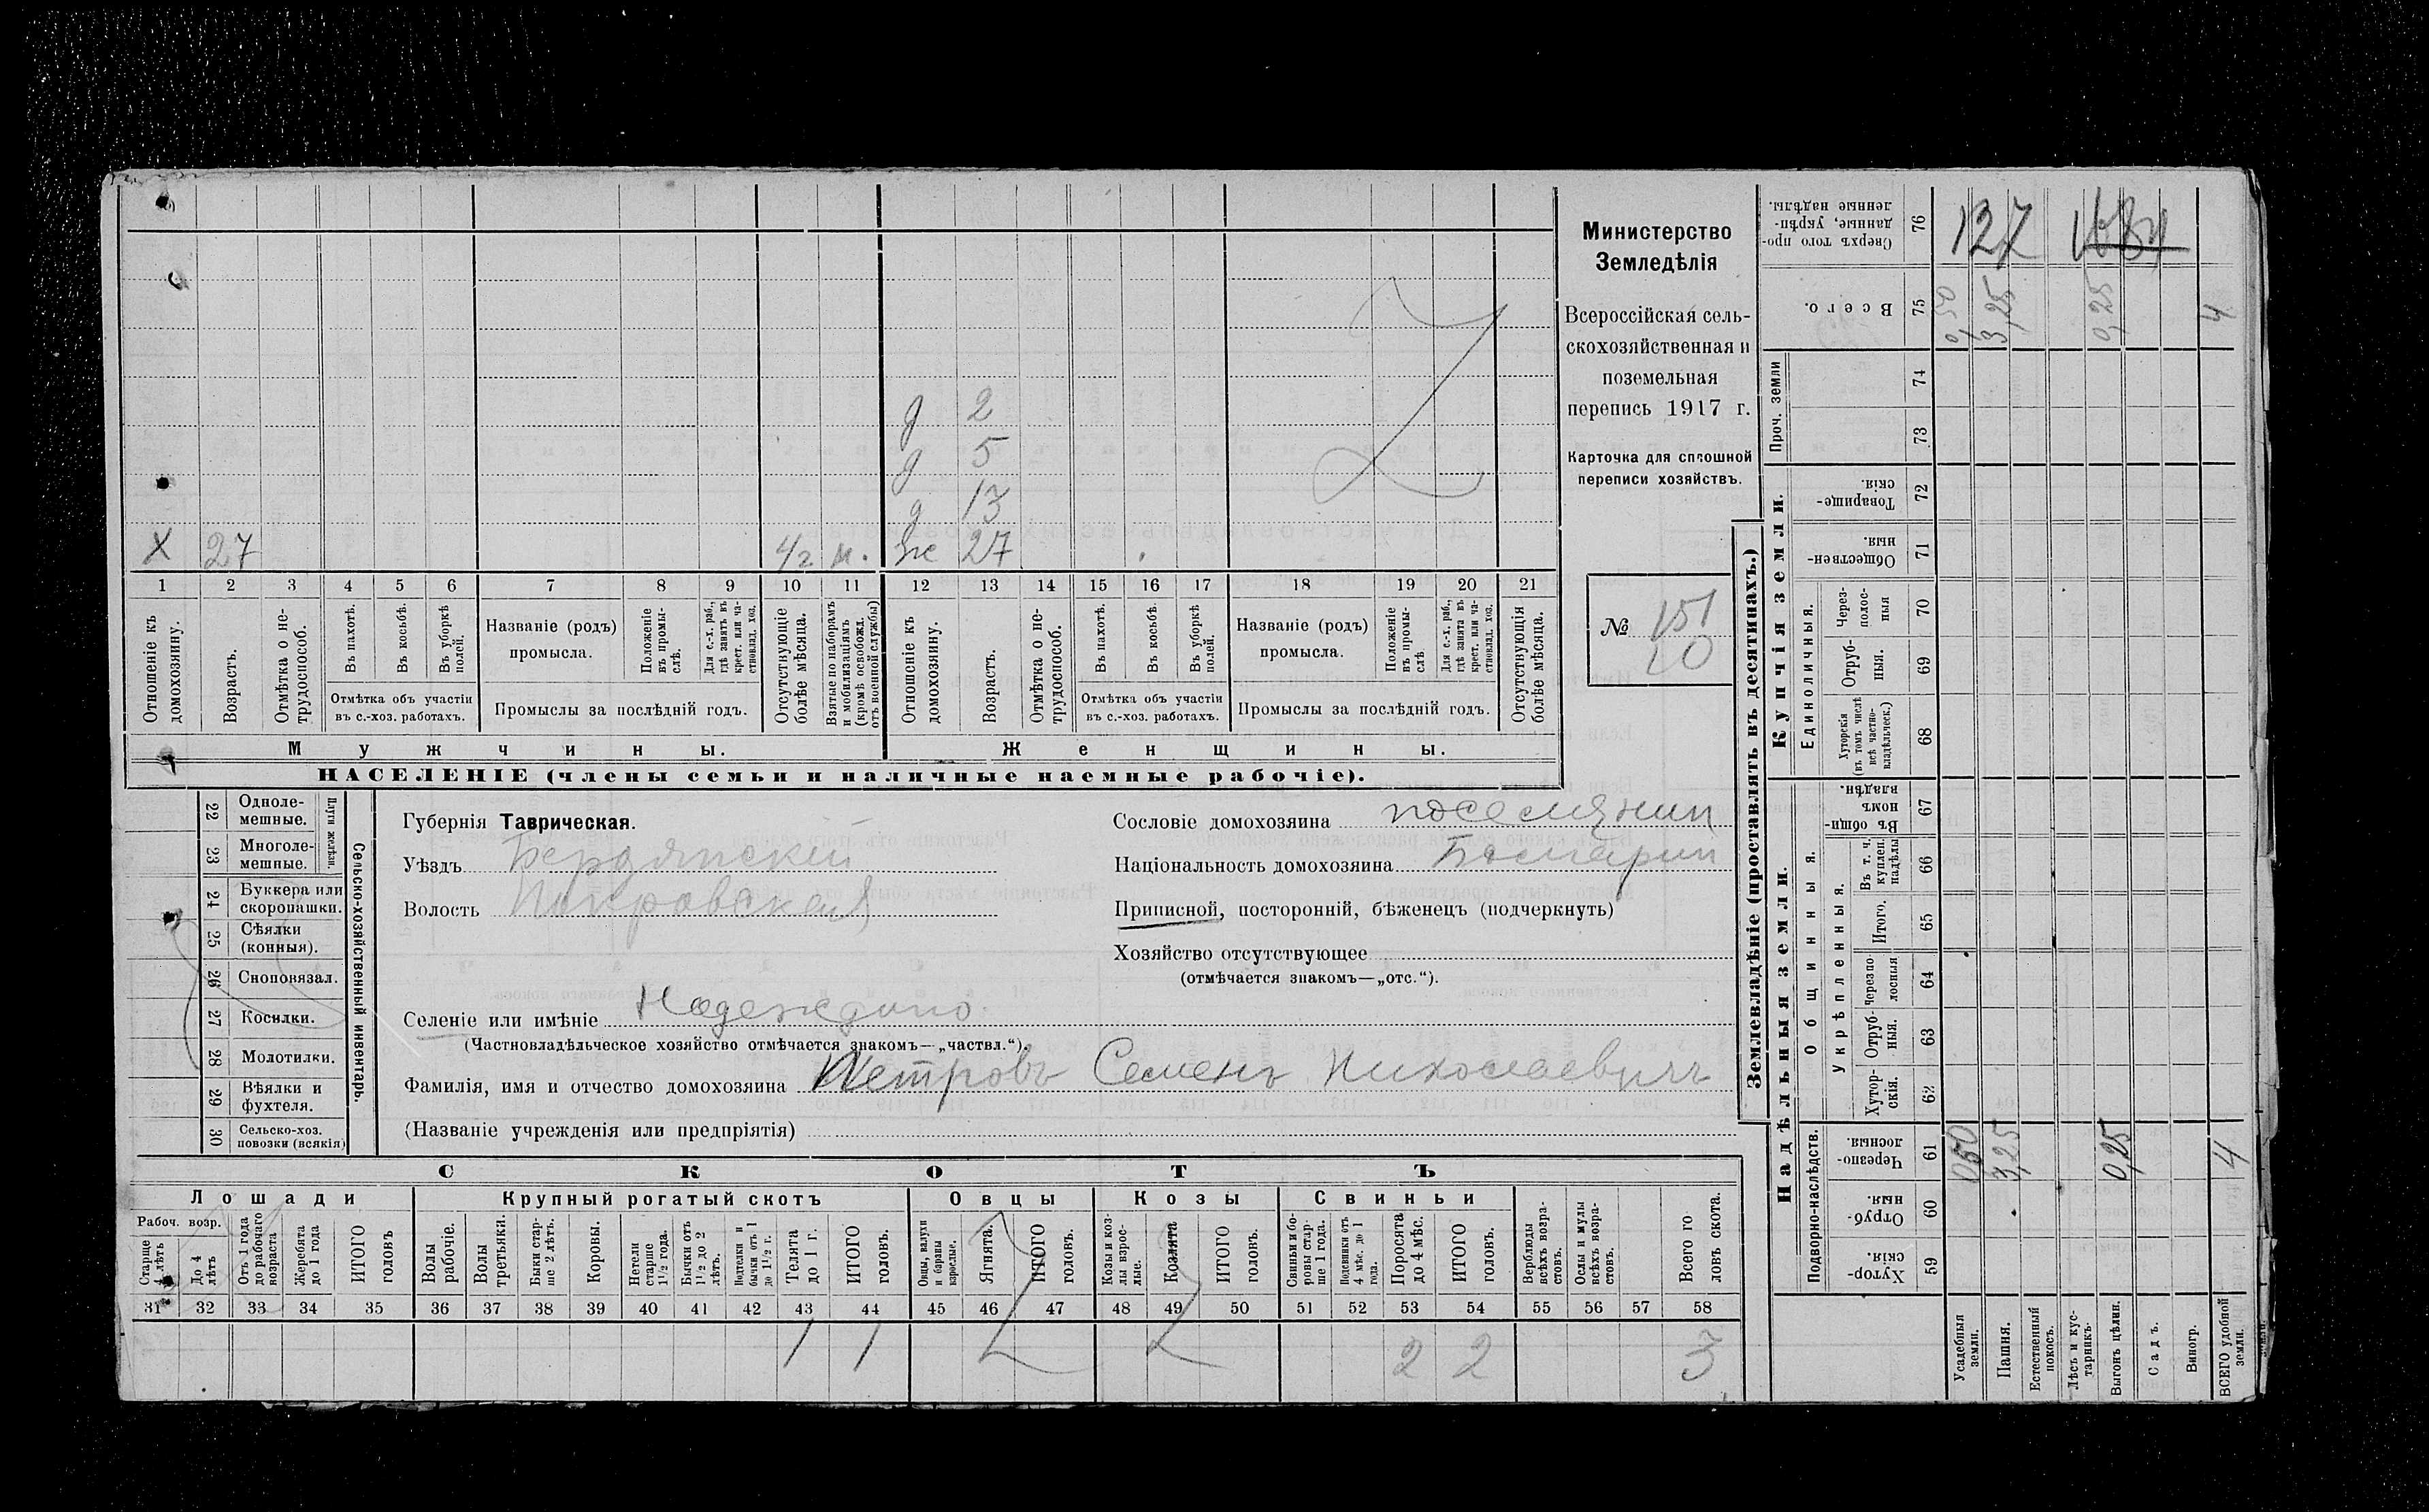 д 2
д 5
д 13
Х 27 4/г м. же 27
1 2 3 4 5 6 7 8 9 10 11 12 13 14 15 16 17 18 19 20 21
Отношеніе къ домохозяину.
Возрастъ.
Отмѣтка о не-трудоспособ.
Въ пахотѣ.
Въ косьбѣ.
Въ уборкѣ полей.
Отмѣтка объ участіи
въ с.-хоз. работахъ.
Названіе (родъ)
промысла.
Положеніе въ промы-слѣ.
Для с.-х. раб., гдѣ занятъ въ крест. или ча-стновлад. хоз.
Промыслы за послѣдній годъ.
Отсутствующіе болѣе мѣсяца.
Взятые по наборамъ и мобилизаціямъ (кромѣ освобожд. отъ военной службы)
Отношеніе къ домохозяину.
Возрастъ.
Отмѣтка о не-трудоспособ.
Въ пахотѣ.
Въ косьбѣ.
Въ уборкѣ полей.
Отмѣтка объ участіи
въ с.-хоз. работахъ.
Названіе (родъ)
промысла.
Положеніе въ промы-слѣ
Для с.-х. раб., гдѣ занята въ крест. или ча-стновлад. хоз.
Промыслы за послѣдній годъ.
Отсутствующія болѣе мѣсяца.
Мужчины.
Женщины.
НАСЕЛЕНІЕ (члены семьи и наличные наемные рабочіе).
Министерство
Земледѣлія
Всероссійская сель-
скохозяйственная и
поземельная
перепись 1917 г.
Карточка для сплошной
переписи хозяйствъ.
№ 151
10
22 Одноле-мешные.
23 Многоле-мешные.
Плуги желѣзн.
24 Буккера или скоропашки.
25 Сѣялки (конныя).
26 Сноповязал.
27 Косилки.
28 Молотилки.
29 Вѣялки и фухтеля.
30 Сельско-хоз. повозки (всякія)
Сельско-хозяйственный инвентарь.
Губернія Таврическая.
Уѣздъ Бердянскій
Волость Покровская
Селеніе или имѣніе Надеждино.
(Частновладѣльческое хозяйство отмѣчается знакомъ—„частвл.“).
Фамилія, имя и отчество домохозяина Петровъ Семенъ Николаевичъ
(Названіе учрежденія или предпріятія)
Сословіе домохозяина поселянин
Національность домохозяина Болгарин
Приписной, посторонній, бѣженецъ (подчеркнуть)
Хозяйство отсутствующее
(отмѣчается знакомъ—„отс.“).
СКОТЪ
Лошади
Крупный рогатый скотъ
Овцы
Козы
Свиньи
Рабоч. возр.
Старше 4 лѣтъ
До 4 лѣтъ
Отъ 1 года до рабочаго возраста
Жеребята до 1 года
ИТОГО головъ
Волы рабочіе.
Волы третьяки.
Быки стар-ше 2 лѣтъ.
Коровы.
Нетели старше 1½ года.
Бычки отъ 1½ до 2 лѣтъ.
Подтелки и бычки отъ 1 до 1½ г.
Телята до 1 г.
ИТОГО головъ.
Овцы, валухи и бараны взрослые.
Ягнята.
ИТОГО головъ.
Козы и коз-лы взрос-лые.
Козлята
ИТОГО головъ.
Свиньи и бо-ровы стар-ше 1 года.
Подсвинки отъ 4 мѣс. до 1 года.
Поросята до 4 мѣс.
ИТОГО головъ.
Верблюды всѣхъ возра-стовъ.
Ослы и мулы всѣхъ возра-стовъ.
Всего го-ловъ скота.
31 32 33 34 35 36 37 38 39 40 41 42 43 44 45 46 47 48 49 50 51 52 53 54 55 56 57 58
1 1 2 2 3
Землевладѣніе (проставлять въ десятинахъ.)
Надѣльныя земли.
Купчія земли.
Проч. земли
Подворно-наслѣдств.
Общинныя.
Укрѣпленныя.
Единоличныя.
Сверхъ того про-данные, укрѣп-ленные надѣлы. 76 127 1684
Всего. 75 0,50 3,25 0,25 4
74
73
Товарище-скія. 72
Обществен-ныя. 71
Через-полос-ныя 70
Отруб-ныя. 69
Хуторскія (въ томъ числѣ всѣ частно-владѣльческ.) 68
Въ общин-номъ владѣн. 67
Въ т. ч. куплен. надѣлы 66
Итого. 65
Черезпо-лосныя 64
Отруб-ныя. 63
Хутор-скія. 62
Черезпо-лосныя. 61 0,50 3,25 0,25 4
Отруб-ныя. 60
Хутор-скія. 59
Усадебныя земли.
Пашня.
Естественный покосъ.
Лѣсъ и кус-тарникъ.
Выгонъ цѣлин.
Садъ.
Виногр.
ВСЕГО удобной земли.